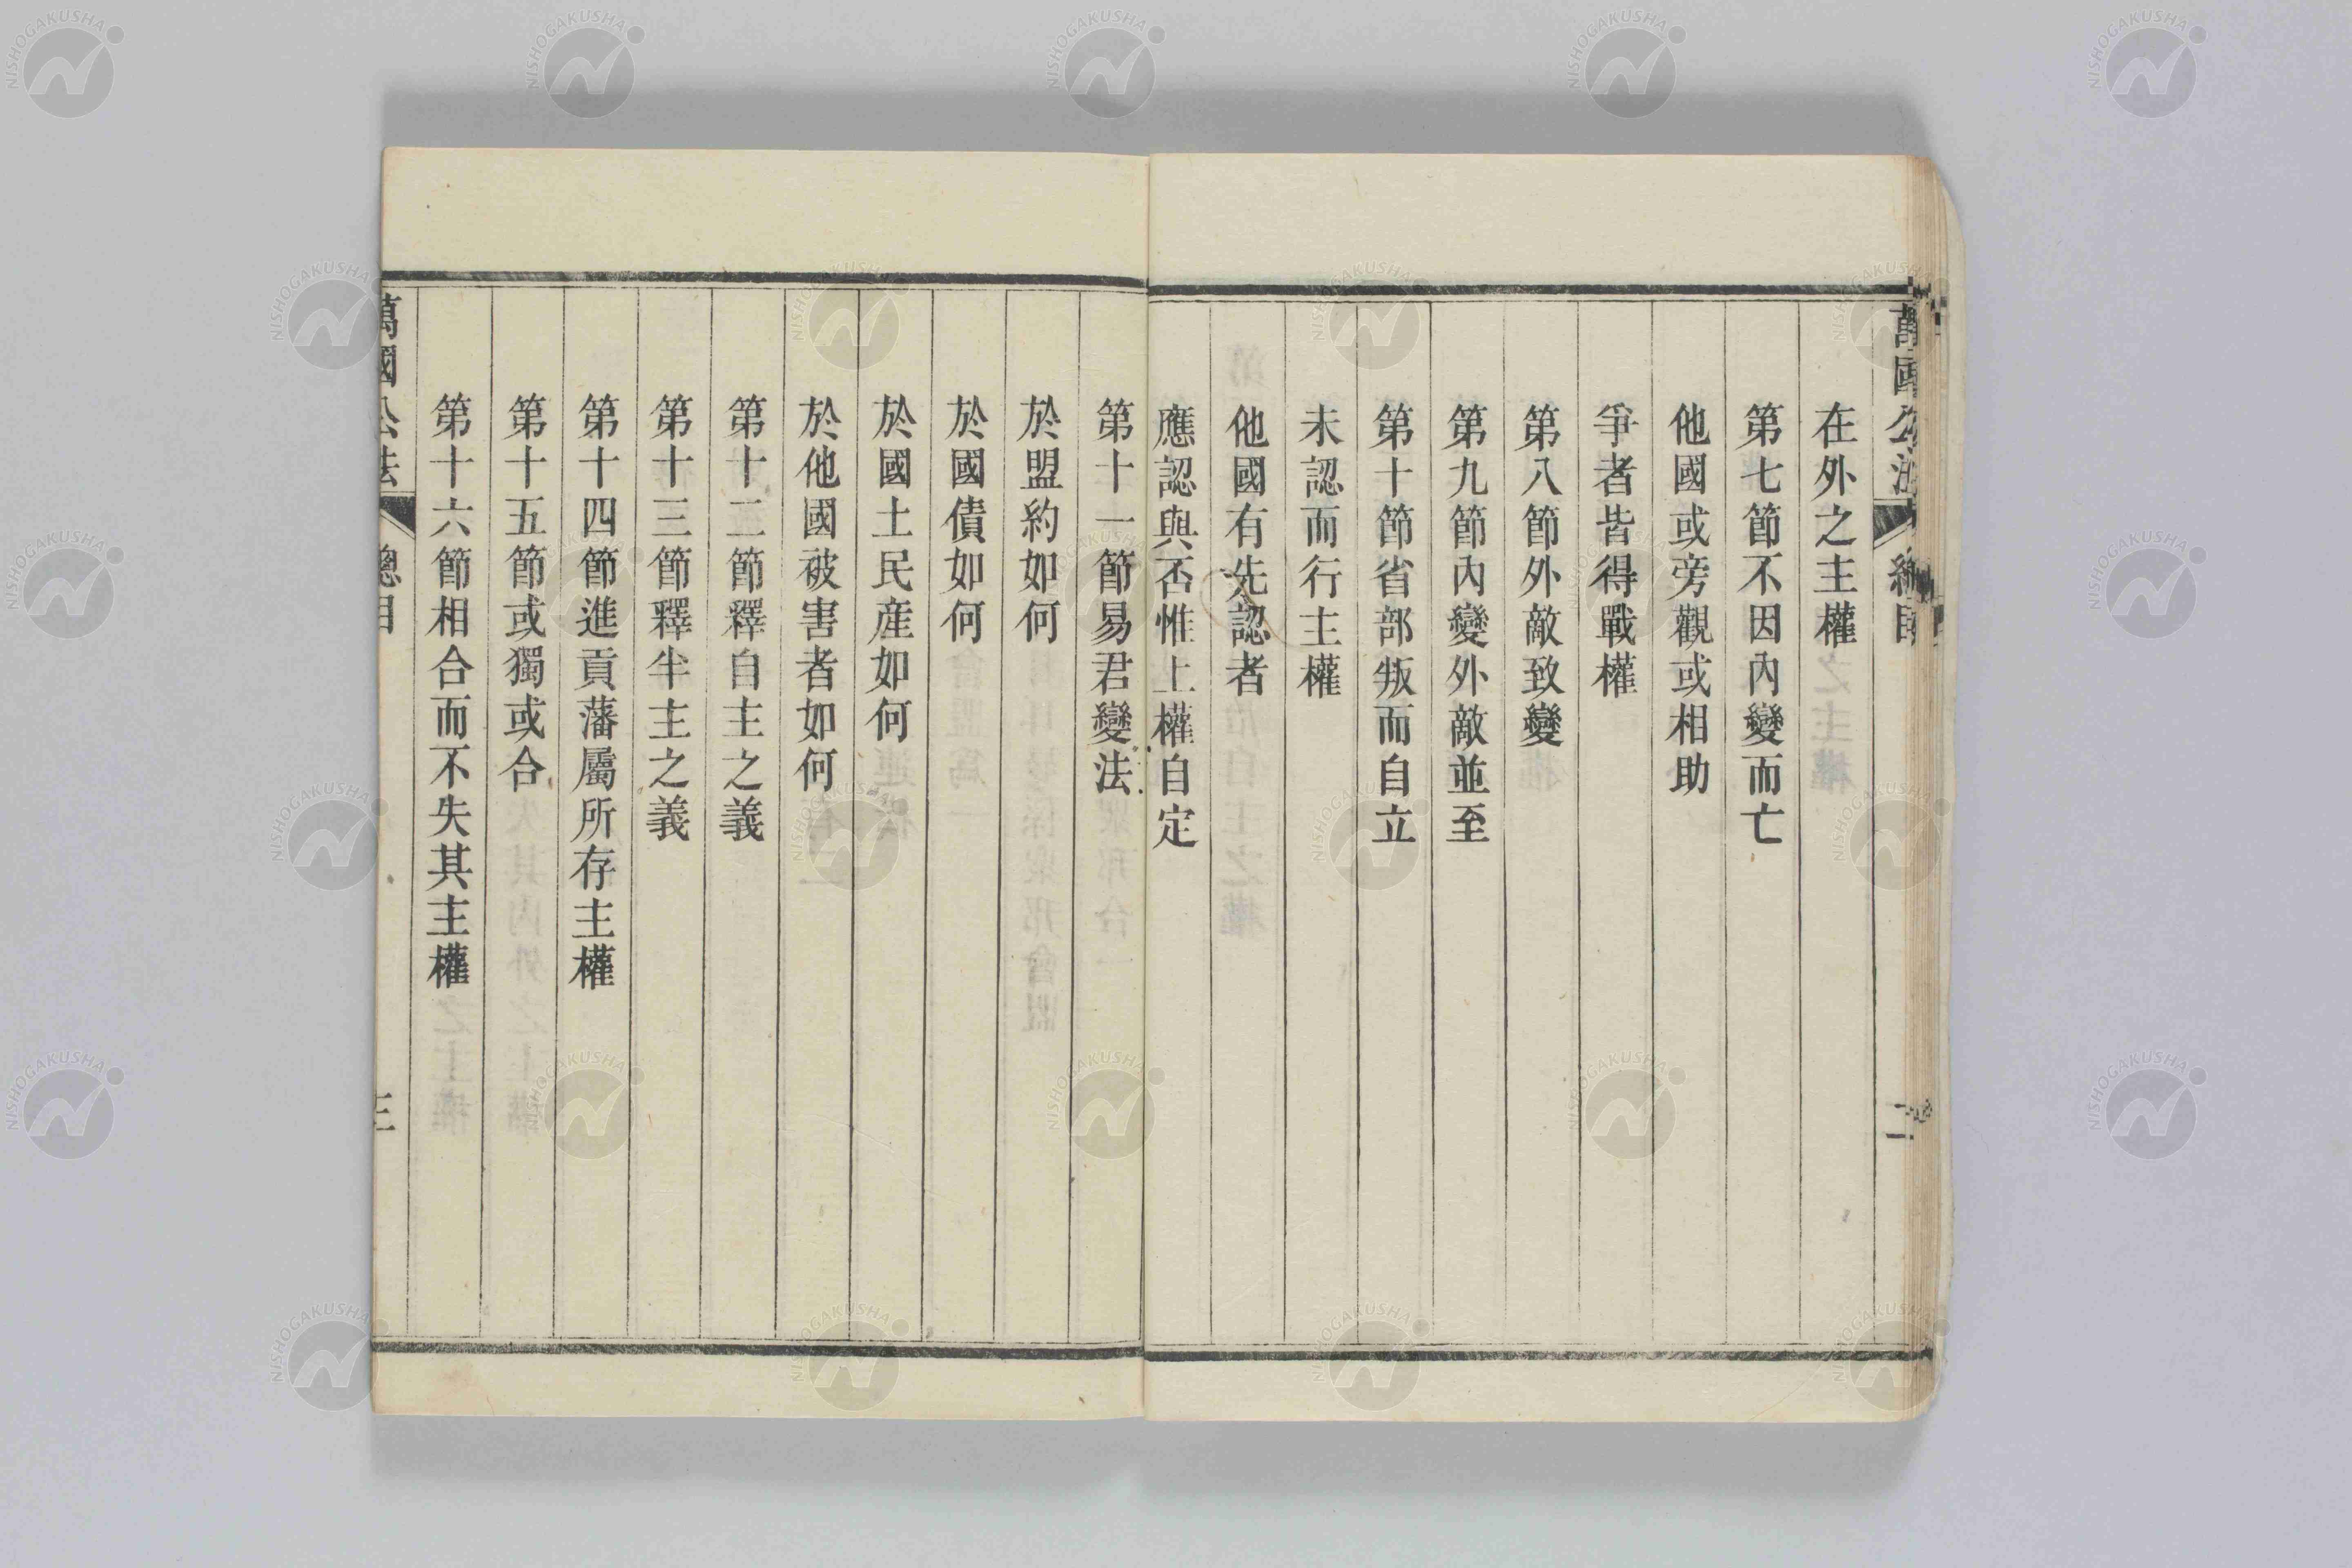 萬國公法 總目 二
在外之主權
第七節不因內變而亡
他國或旁觀或相助
爭者皆得戰權
第八節外敵致變
第九節內變外敵並至
第十節省部叛而自立
未認而行主權
他國有先認者
應認與否惟上權自定
第十一節易君變法
於盟約如何
於國債如何
於國土民產如何
於他國被害者如何
第十二節釋自主之義
第十三節釋半主之義
第十四節進貢藩屬所存主權
第十五節或獨或合
第十六節相合而不失其主權
萬國公法 總目 三
NISHOGAKUSHA